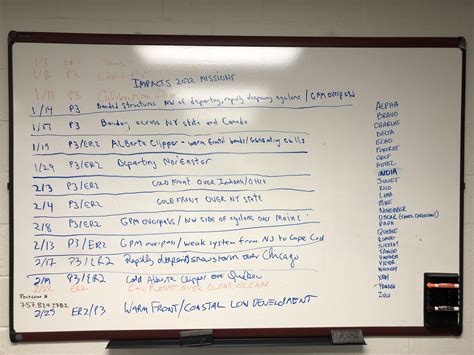 IMPACTS 2022 MISSIONS
1/5 P3
1/8 P3
P3
1/14 P3 Banded structures NW of departing, rapidly deepening cyclone / GPM overpass
P3 Banding across NY state and Canada
1/19 P3/ER2 Alberta Clipper - warm frontal bands / generating cells
1/29 P3/ER2 Departing Nor'Easter
2/3 P3 COLD FRONT OVER Indiana/OHIO
2/4 P3 COLD FRONT OVER NY STATE
2/8 P3 GPM overpass / NW side of cyclone over Maine
2/13 P3/ER2 GPM overpass / weak system from NJ to Cape Cod
2/17 P3/ER2 Rapidly deepening snowstorm over Chicago
2/19 P3/ER2 Cold Alberta Clipper over Quebec
OVER CLEAR OCEAN
757.824.2782
2/25 ER2/P3 WARM FRONT/COASTAL LOW DEVELOPMENT
ALPHA
BRAVO
CHARLIE
DELTA
ECHO
FOXTROT
GOLF
HOTEL
INDIA
JULIET
KILO
LIMA
MIKE
NOVEMBER
OSCAR
PAPA
QUEBEC
ROMEO
SIERRA
TANGO
UNIFORM
VICTOR
WHISKEY
XRAY
YANKEE
ZULU